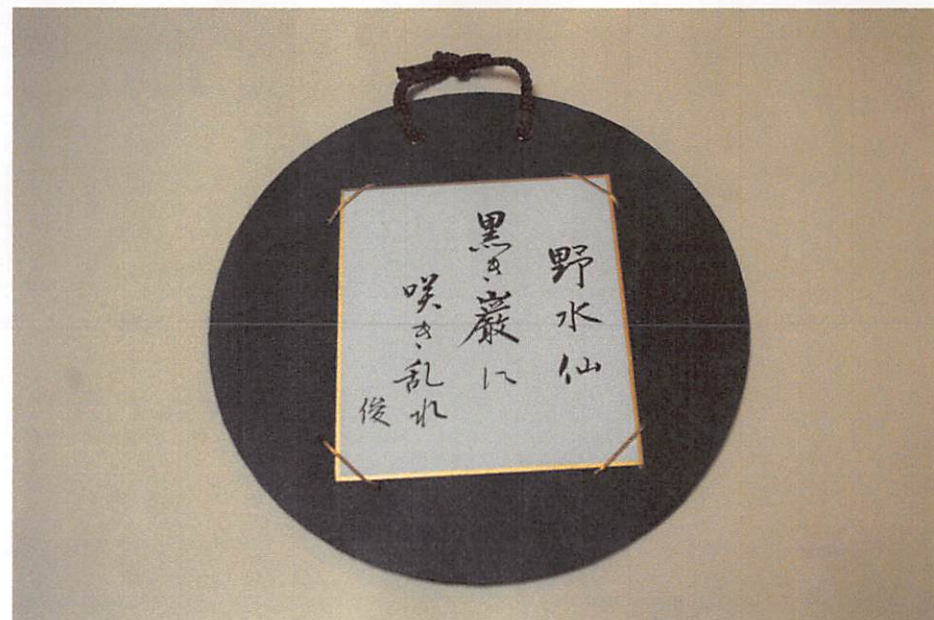 野水仙
黒き巌に
咲き乱れ
俊